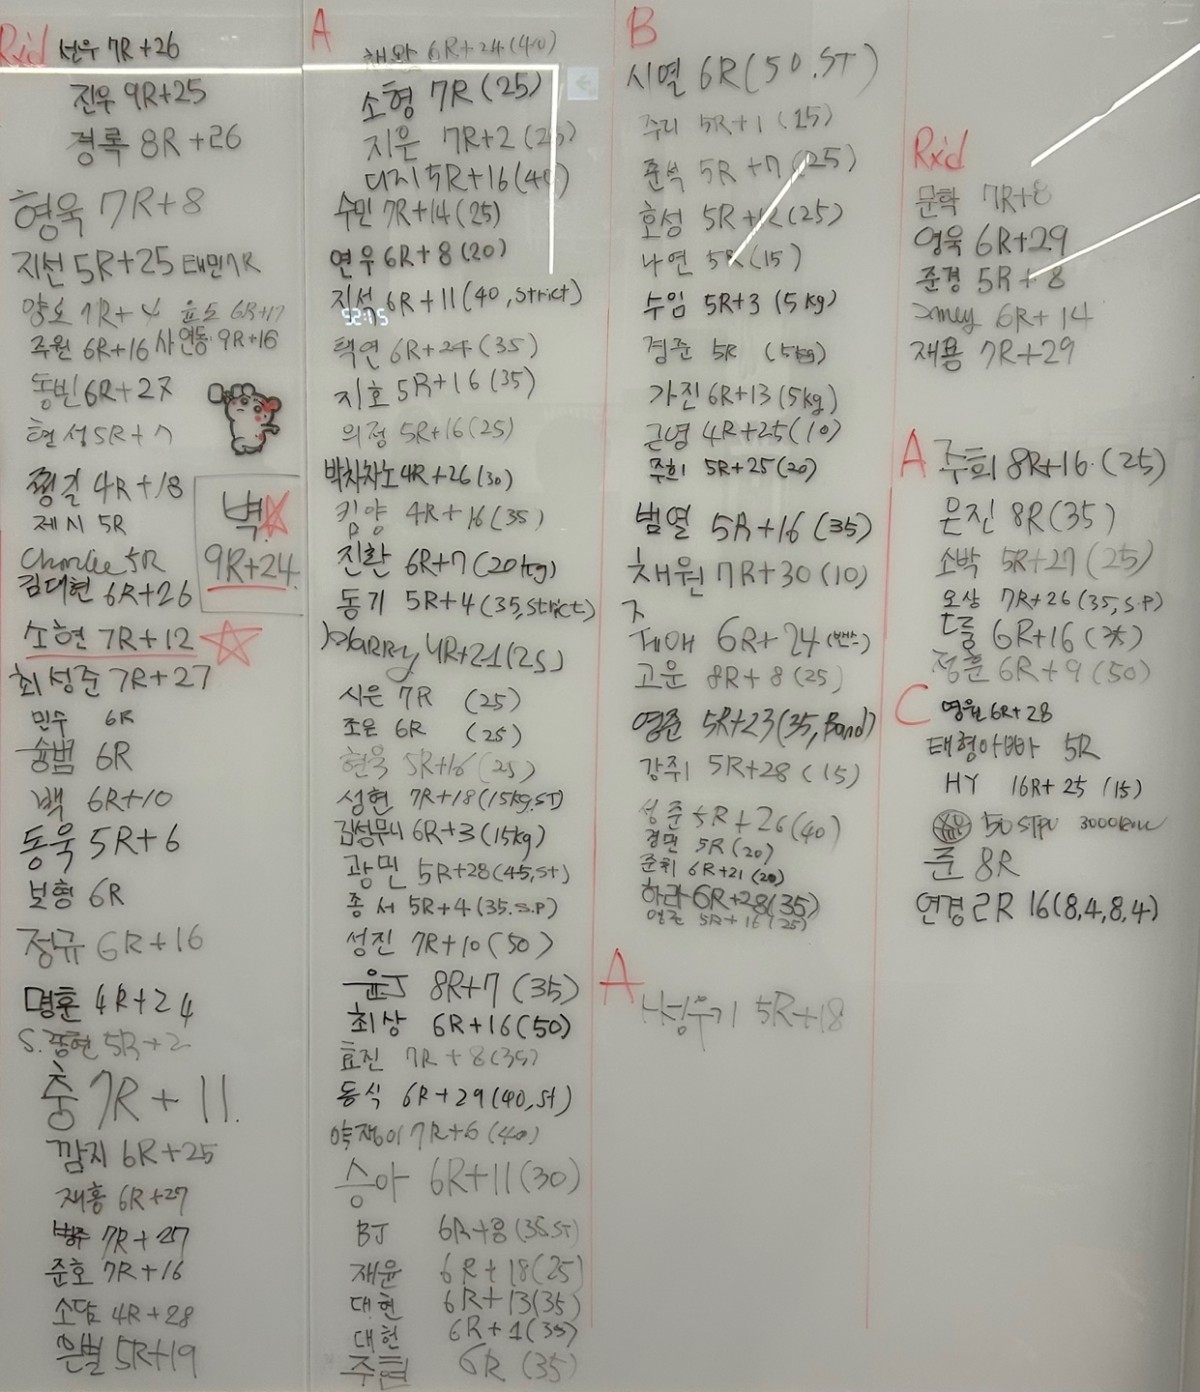 Rx'd
선우 7R+26
진우 9R+25
경록 8R+26
형욱 7R+8
지선 5R+25 태민 7R
양호 7R+4 윤도 6R+17
주원 6R+16 사연동 9R+16
동빈 6R+27
현성 5R+7
찡길 4R+18
제시 5R
Charlie 5R
벽
9R+24
김대현 6R+26
소현 7R+12
최성준 7R+27
민수 6R
슝범 6R
백 6R+10
동욱 5R+6
보형 6R
정규 6R+16
명훈 4R+24
S.종현 5R+2
충 7R+11
깜지 6R+25
재홍 6R+27
병주 7R+27
준호 7R+16
소담 4R+28
은별 5R+19
A
채완 6R+24(40)
소형 7R (25)
지은 7R+2 (25)
디지 5R+16(40)
수민 7R+14(25)
연우 6R+8(20)
지석 6R+11(40, strict)
택연 6R+24(35)
지호 5R+16(35)
의정 5R+16(25)
박차차노 4R+26(30)
킴양 4R+16(35)
진환 6R+7(20kg)
동기 5R+4(35, strict)
Harry 4R+21(25)
시은 7R (25)
조은 6R (25)
현욱 5R+16(25)
성현 7R+18(15kg.ST)
김성무니 6R+3(15kg)
광민 5R+28(45,st)
종서 5R+4(35.S.P)
성진 7R+10(50)
윤J 8R+7(35)
최상 6R+16(50)
효진 7R+8(35)
동식 6R+29(40,st)
약쟁이 7R+6(40)
승아 6R+11(30)
BJ 6R+8(35.ST)
재윤 6R+18(25)
대현 6R+13(35)
대헌 6R+1(35)
주협 6R (35)
B
시열 6R(50.ST)
주리 5R+1(15)
준석 5R+7(25)
호성 5R+12(25)
나연 5R(15)
수임 5R+3(5kg)
경준 5R (5kg)
가진 6R+13(5kg)
근녕 4R+25(10)
주희 5R+25(20)
범열 5R+16(35)
채원 7R+30(10)
6R+24(밴스)
고운 8R+8(25)
영준 5R+23(35,Band)
강쥐 5R+28(15)
성준 5R+26(40)
경면 5R(20)
준휘 6R+21(20)
하라 6R+28(35)
5R+16(25)
A
5R+18
Rx'd
문학 7R+8
영욱 6R+29
준경 5R+8
6R+14
재용 7R+29
A
주희 8R+16(25)
은진 8R(35)
소박 5R+27(25)
오상 7R+26(35,S.P)
6R+16
정훈 6R+9(50)
C
영원 6R+28
태형아빠 5R
HY 16R+25(15)
50 STPU 3000Row
준 8R
연경 2R 16(8,4,8,4)